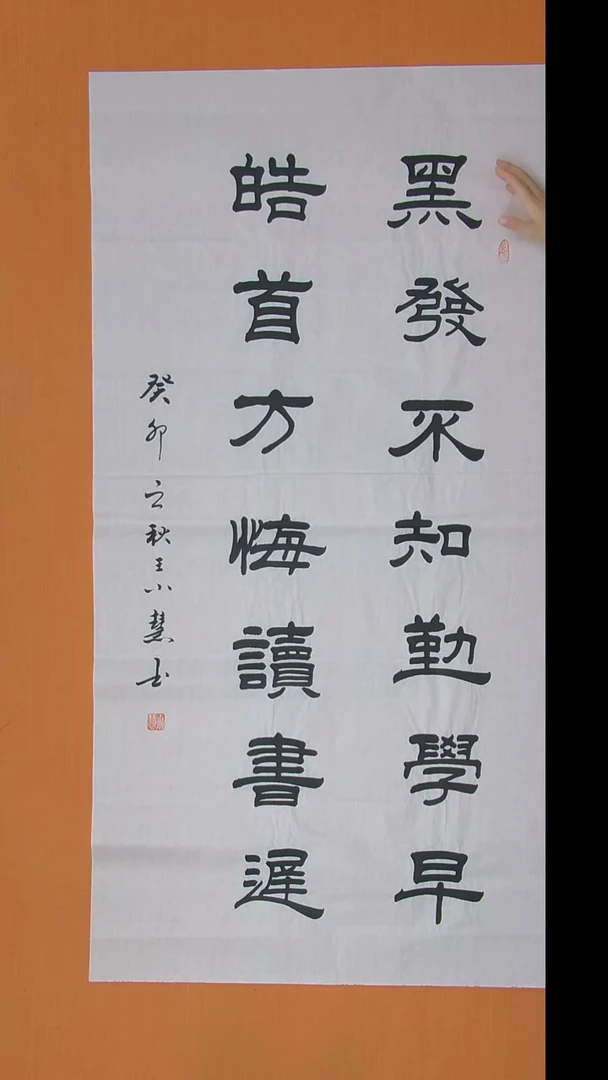 黑發不知勤學早
皓首方悔讀書遲
癸卯立秋王小慧書